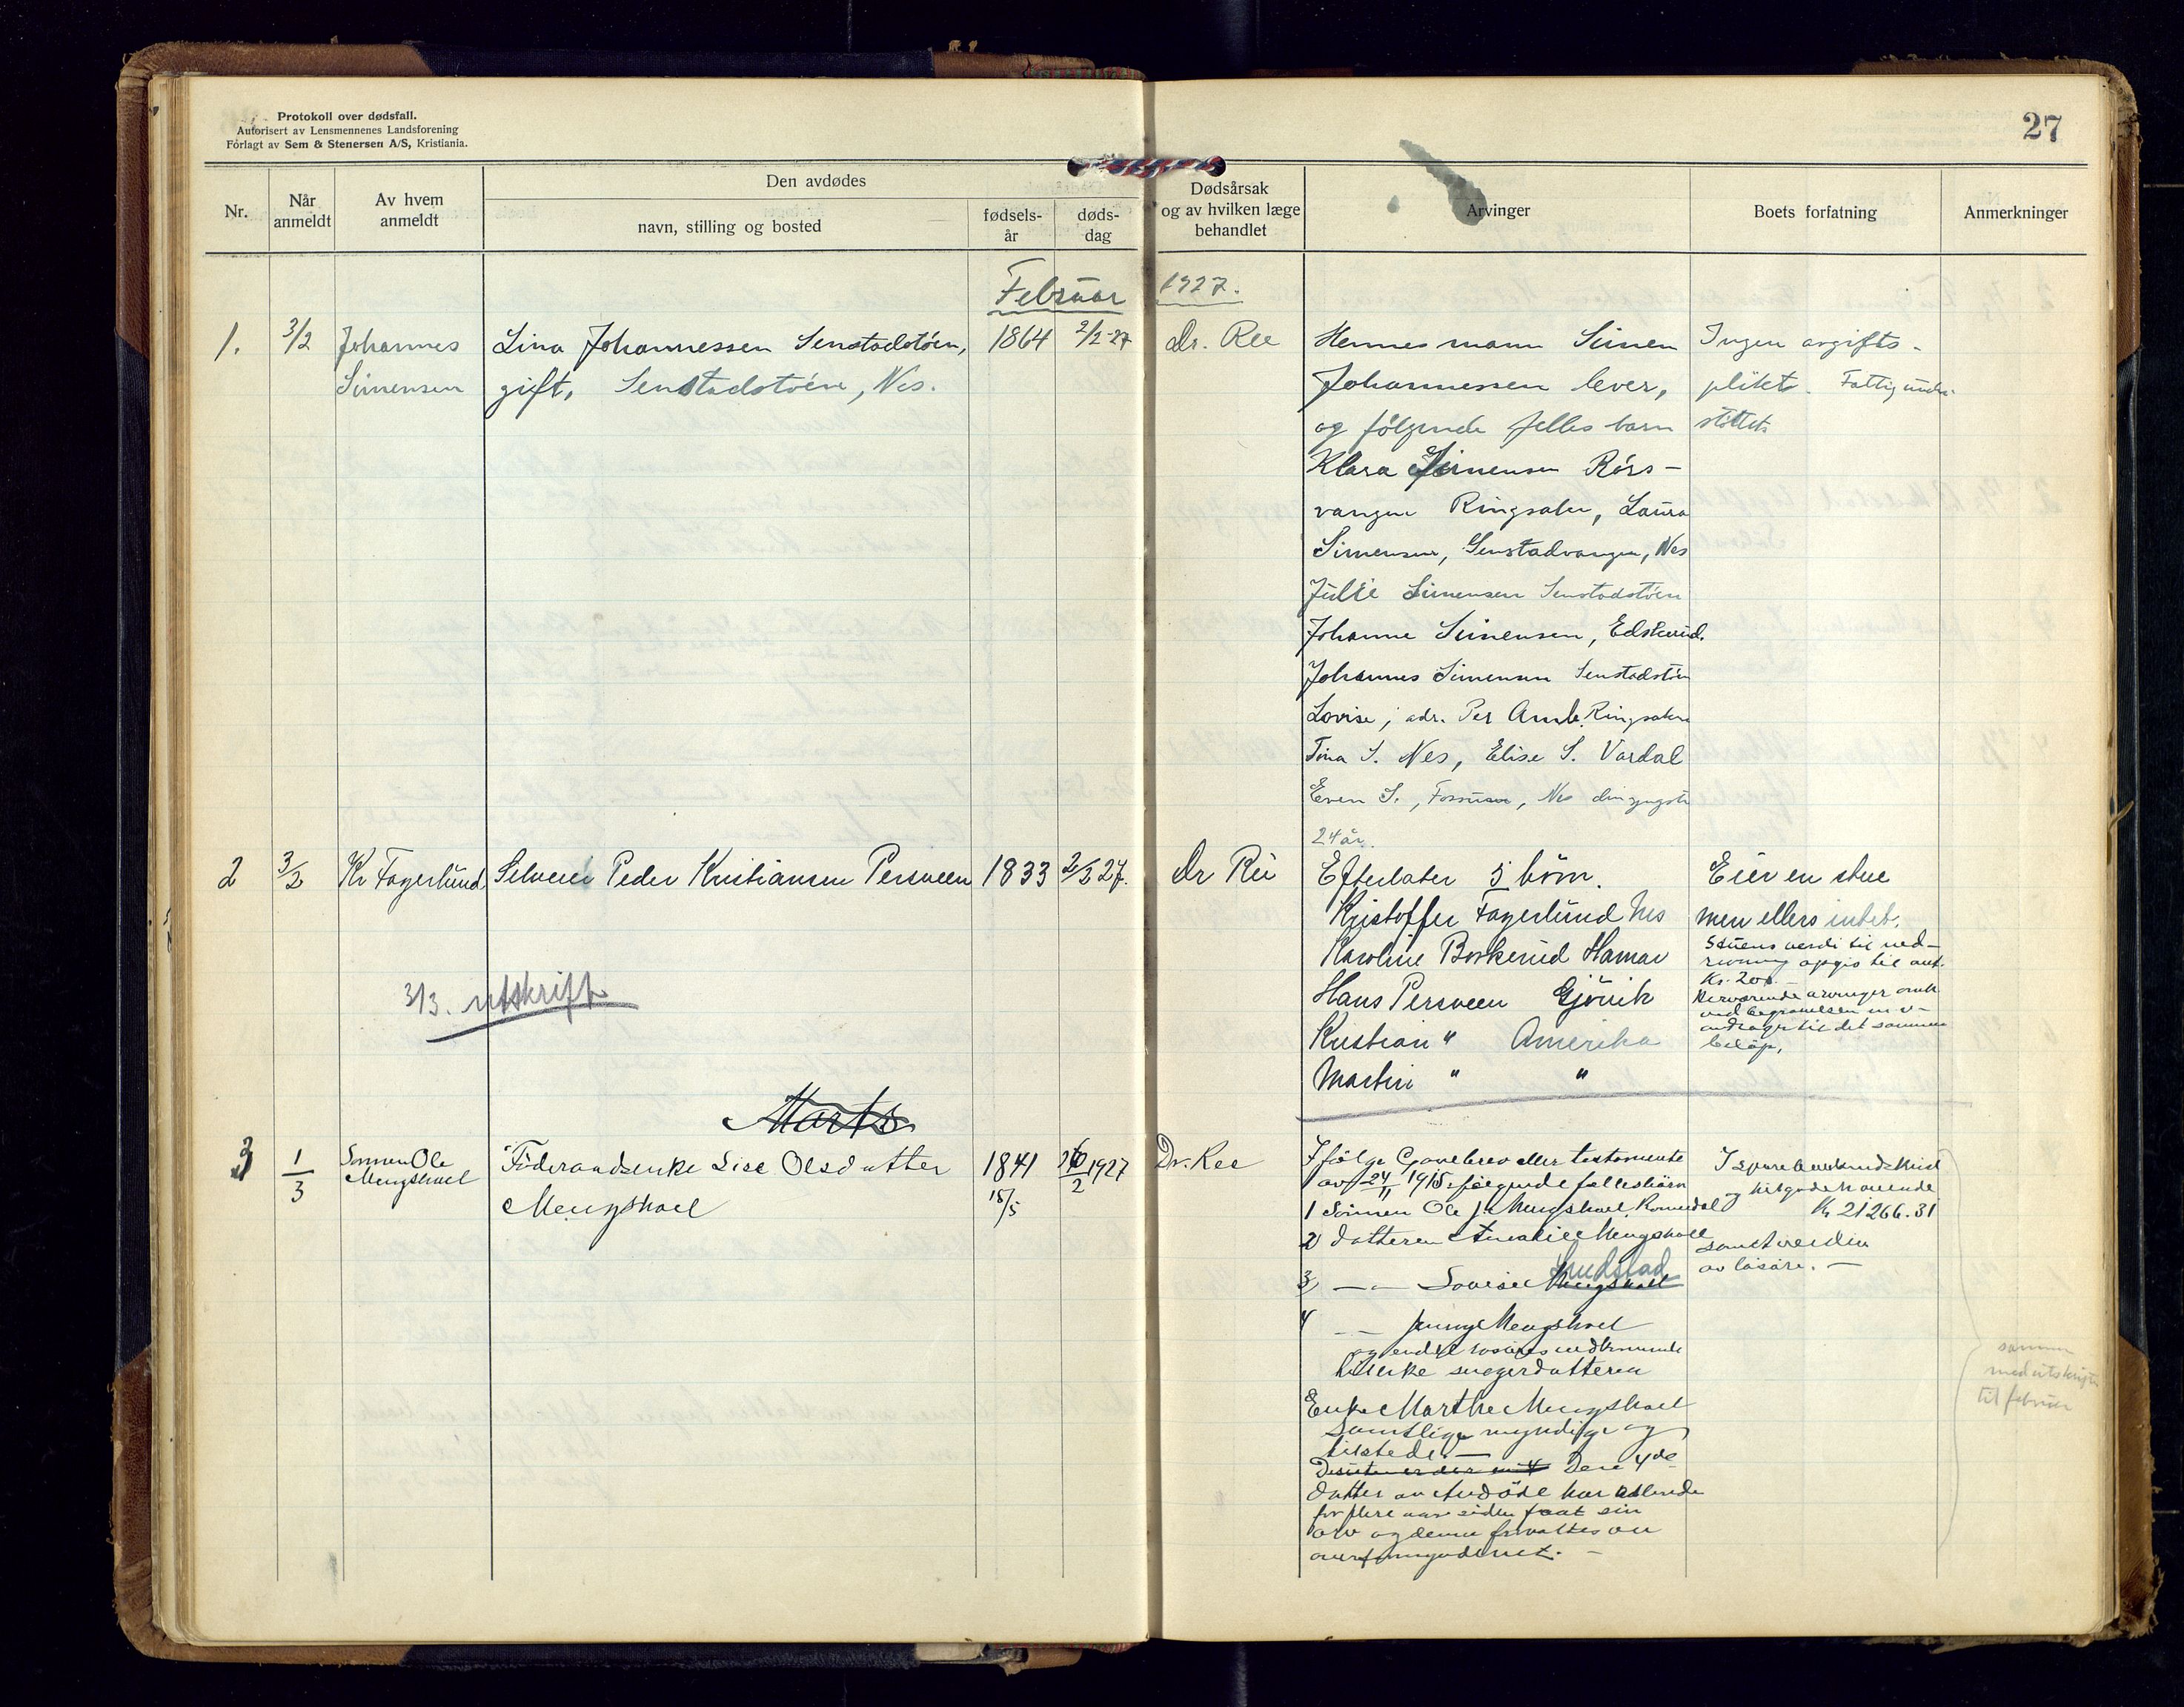 Protokoll over dødsfall.
Autorisert av Lensmennenes Landsforening
Forlagt av Sem & Stenersen A/S, Kristiania.
27
Nr.
Når anmeldt
Av hvem anmeldt
Den avdødes
navn, stilling og bosted
fødsels-år
døds-dag
Dødsårsak og av hvilken læge behandlet
Arvinger
Boets forfatning
Anmerkninger
Februar 1927.
1.
3/2
Johannes
Simensen
Lina Johannessen Senstadstøen,
gift, Senstadstøen, Nes.
1864
2/2-27
Dr. Ree
Hennes mann Simen
Johannessen lever,
og følgende felles barn
Klara Simensen Rørs-
vangen Ringsaker, Laura
Simensen, Senstadvangen, Nes
Julie Simensen Senstadstøen
Johanne Simensen, Edskerud.
Johannes Simensen Senstadstøen
Lovise, adr. Per Amb. Ringsaker
Tina S. Nes, Elise S. Vardal
Even S., Nes den yngste
24 år.
Ingen avgifts-
plikt. Fattigunder-
støttet.
2
3/2
Kr Fagerlund
Selveier Peder Kristiansen Persveen
1833
2/2 27.
Dr Ree
Efterlater 5 børn.
Kristoffer Fagerlund Nes
Karoline Borkerud Hamar
Hans Persveen Gjövik
Kristian " Amerika
Martin " "
Eier en stue
men ellers intet.
Stuens verdi til ned-
rivning opgis til ant.
Kr. 200.-
Herværende arvinger
ved begravelsen m.v.
andrager til det samme
beløp.
3/3. utskrift
Marts
3
1/3
Sønnen Ole
Mengshoel
Föderaadsenke Lise Olsdatter
Mengshoel
1841
18/5
26/2 1927
Dr. Ree
Ifølge Gavebrev eller testamente
av 24/11 1915 følgende fellesbörn
1 Sønnen Ole J. Mengshoel, Romedal
2 datteren Amalie Mengshoel
3 — " — Lovise Mengshoel Snudstad
4 — " — Jenny Mengshoel
svigerdatteren
Enke Marthe Mengshoel
Samtlige myndige og
tilstede. —
Den 4de
datter av Avdöde har
for flere aar siden faat sin
arv og denne forvaltes av
overformynderiet. —
I sparebankindskud
og tilgodehavende
Kr 21266.31
samt verdien
av løsøre. —
sammen
med utskrift
til februar